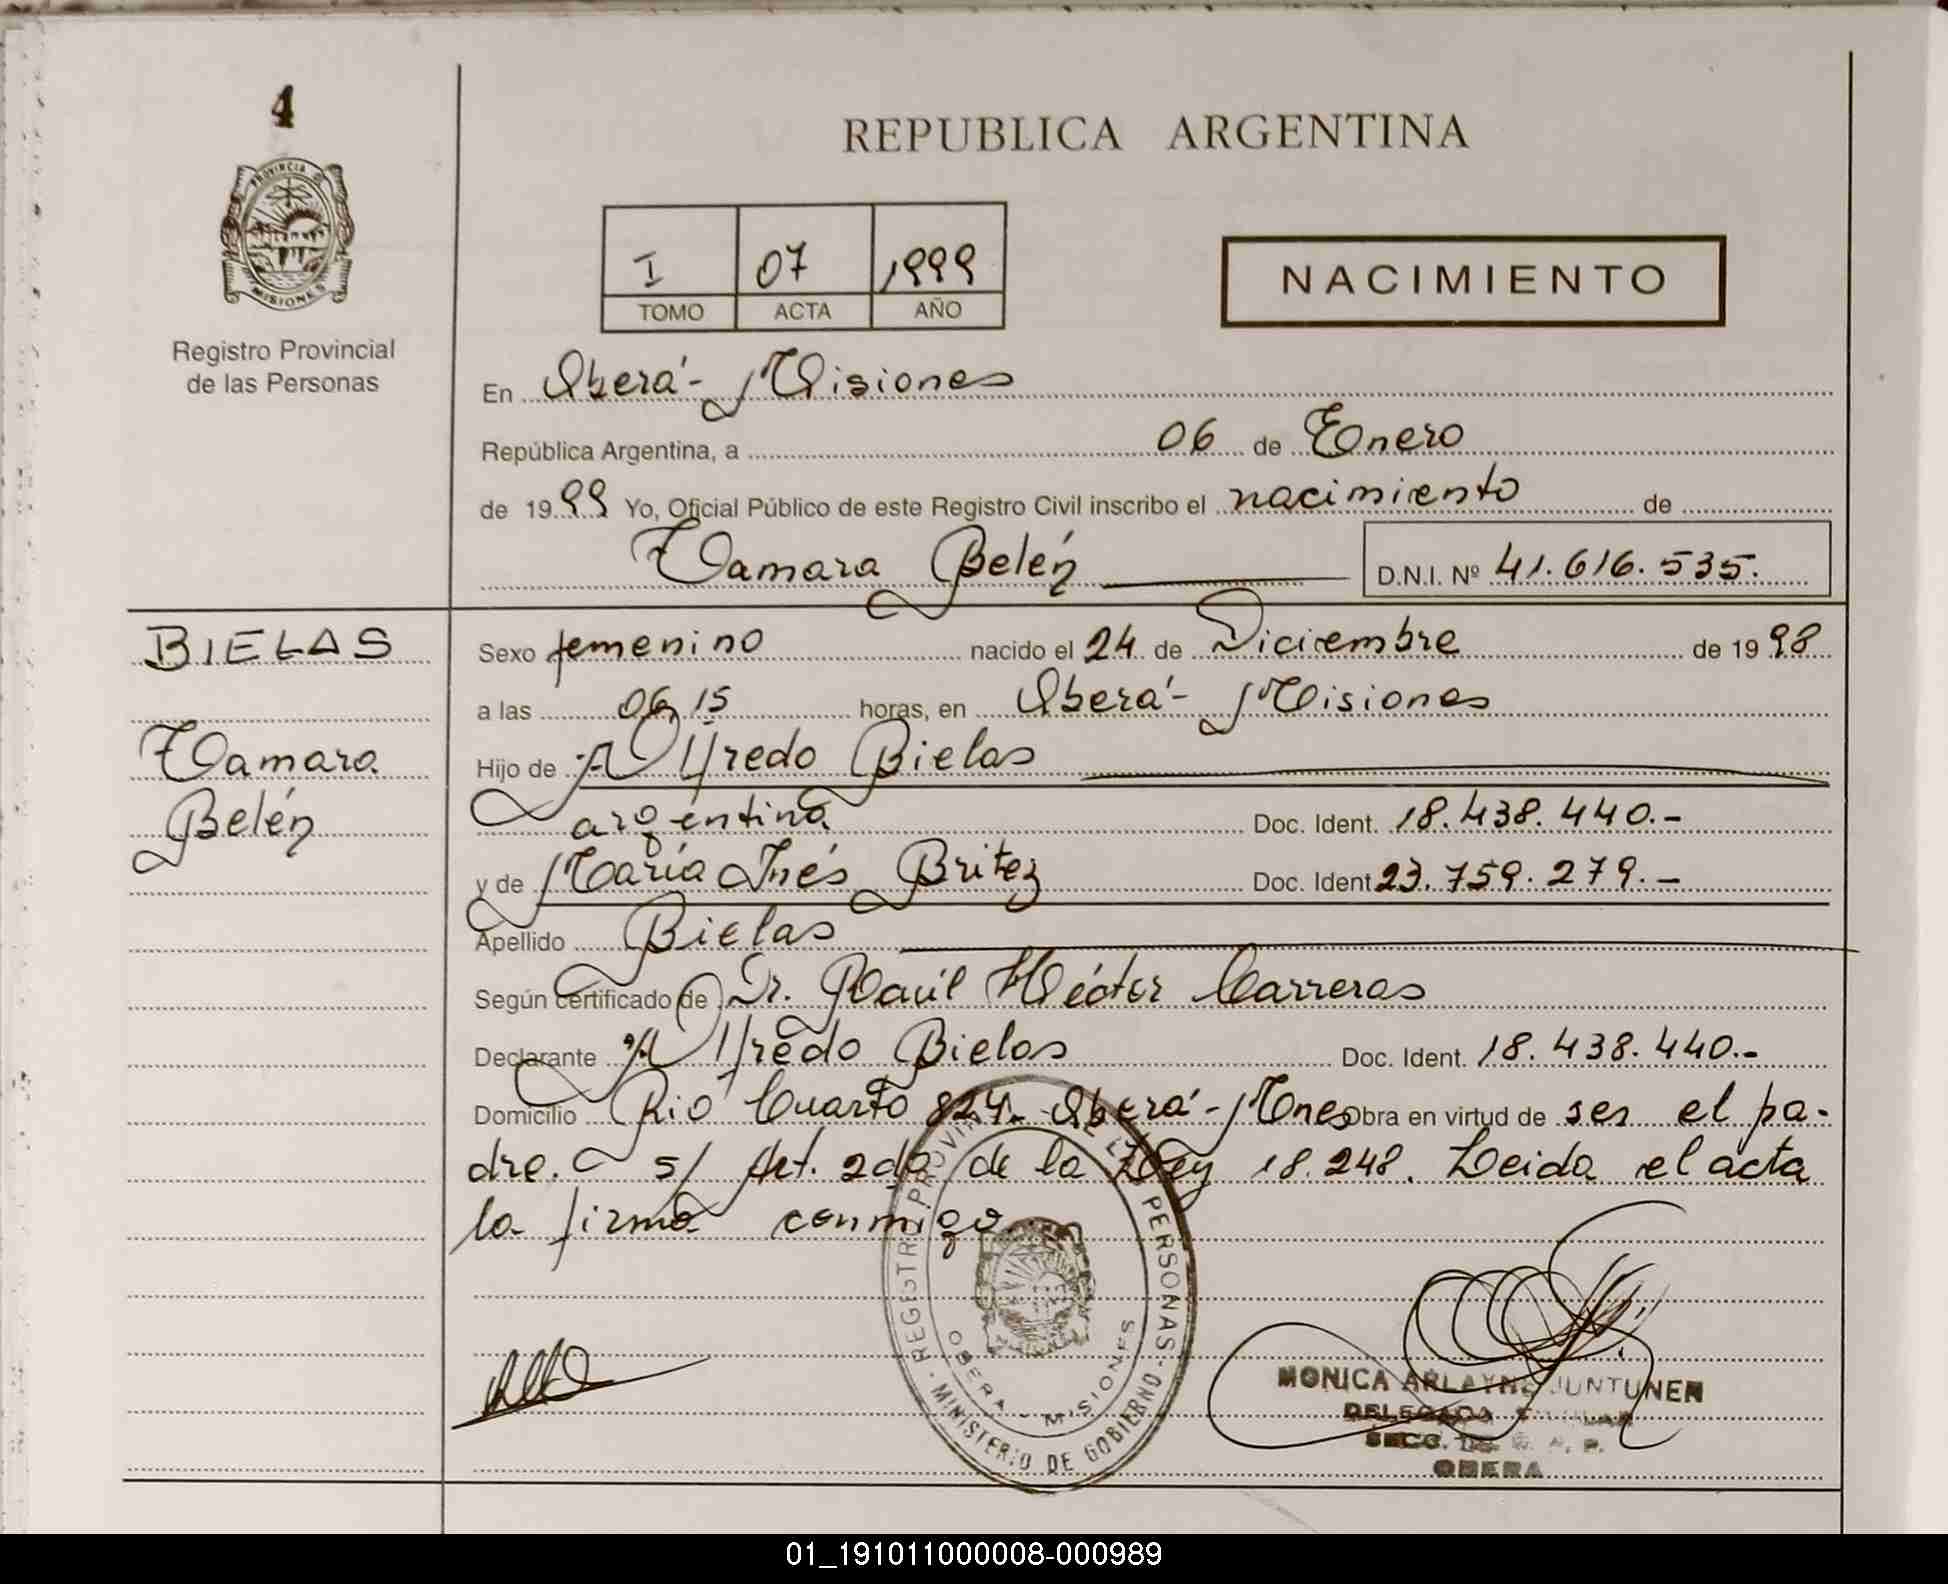 4
PROVINCIA D
MISIONES
Registro Provincial
de las Personas
REPUBLICA ARGENTINA
I 07 1999
TOMO ACTA AÑO
NACIMIENTO
En Oberá - Misiones
República Argentina, a 06 de Enero
de 1999 Yo, Oficial Público de este Registro Civil inscribo el nacimiento de
Tamara Belén D.N.I. Nº 41.616.535.
BIELAS
Tamara
Belén
Sexo femenino nacido el 24 de Diciembre de 1998
a las 06,15 horas, en Oberá - Misiones
Hijo de Alfredo Bielas
argentina Doc. Ident. 18.438.440.-
y de María Inés Britez Doc. Ident. 23.759.279.-
Apellido Bielas
Según certificado de Dr. Raúl Héctor Carreras
Declarante Alfredo Bielas Doc. Ident. 18.438.440.-
Domicilio Rio Cuarto 824 - Oberá - Mnes Obra en virtud de ser el pa-
dre. s/ Art. 2do de la Ley 18.248. Leida el acta
la firma conmigo.
REGISTRO PROVIN DE LAS PERSONAS
MINISTERIO DE GOBIERNO
OBERA - MISIONES
MONICA ARLAYNE JUNTUNEN
DELEGADA TITULAR
SECC. R. P.
OBERA
01_191011000008-000989